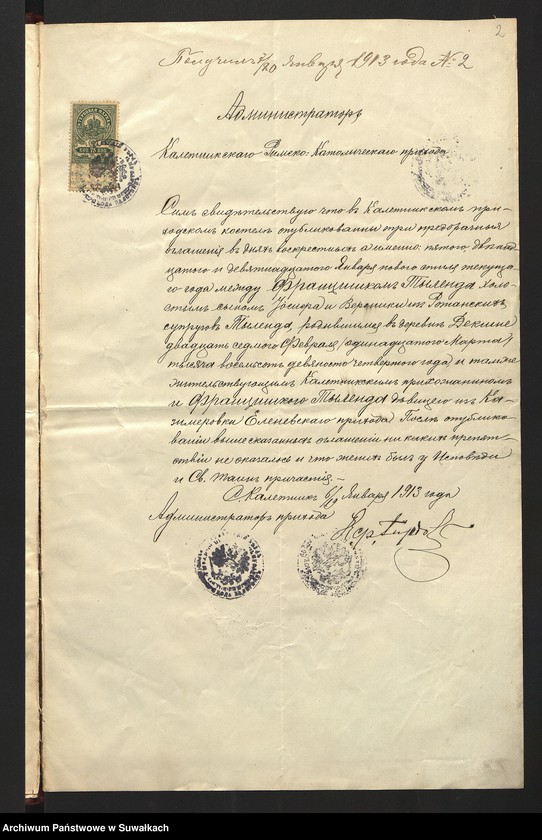 2
Получилъ 7/20 января 1913 года № 2
Администраторъ
Калетникскаго Римско-Католическаго прихода
Симъ свидѣтельствую что въ Калетникскомъ при-
ходскомъ костелѣ опубликованы три предбрачныя
оглашенія въ дняхъ воскресныхъ а именно: пятого, двѣнад-
цатого и девятнадцатого Января нового стиля текуща-
го года между Францишкомъ Тыленда, холо-
стымъ, сыномъ Іосифа и Вероники изъ
супруговъ Тыленда, родившимся въ деревнѣ
двадцать седмого Февраля /одинадцатого Марта/
тысяча восемьсотъ девяносто четвертого года и тамже
жительствующимъ Калетникскимъ прихожаниномъ
и Тыленда дѣвицею изъ Ка-
зимеровки Еленевскаго прихода. Послѣ опублико-
ваніи выше сказанныхъ оглашеніи ни какихъ препят-
ствіи не оказалось и что женихъ былъ у Исповѣди
и Св. Таинъ причастія. –
С. Калетникъ Января 1913 года
Администраторъ прихода
Archiwum Państwowe w Suwałkach